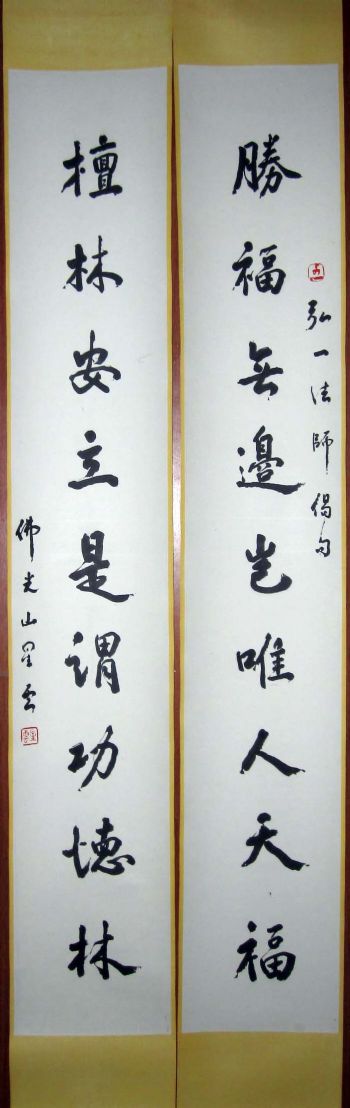 弘一法師偈句
勝福無邊豈唯人天福
檀林安立是謂功德林
佛光山星雲